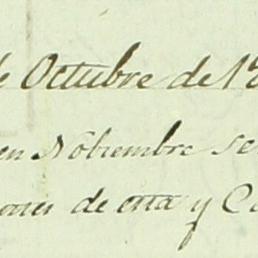 de Octubre de 1
en Nobiembre se
ones de esta y Ca